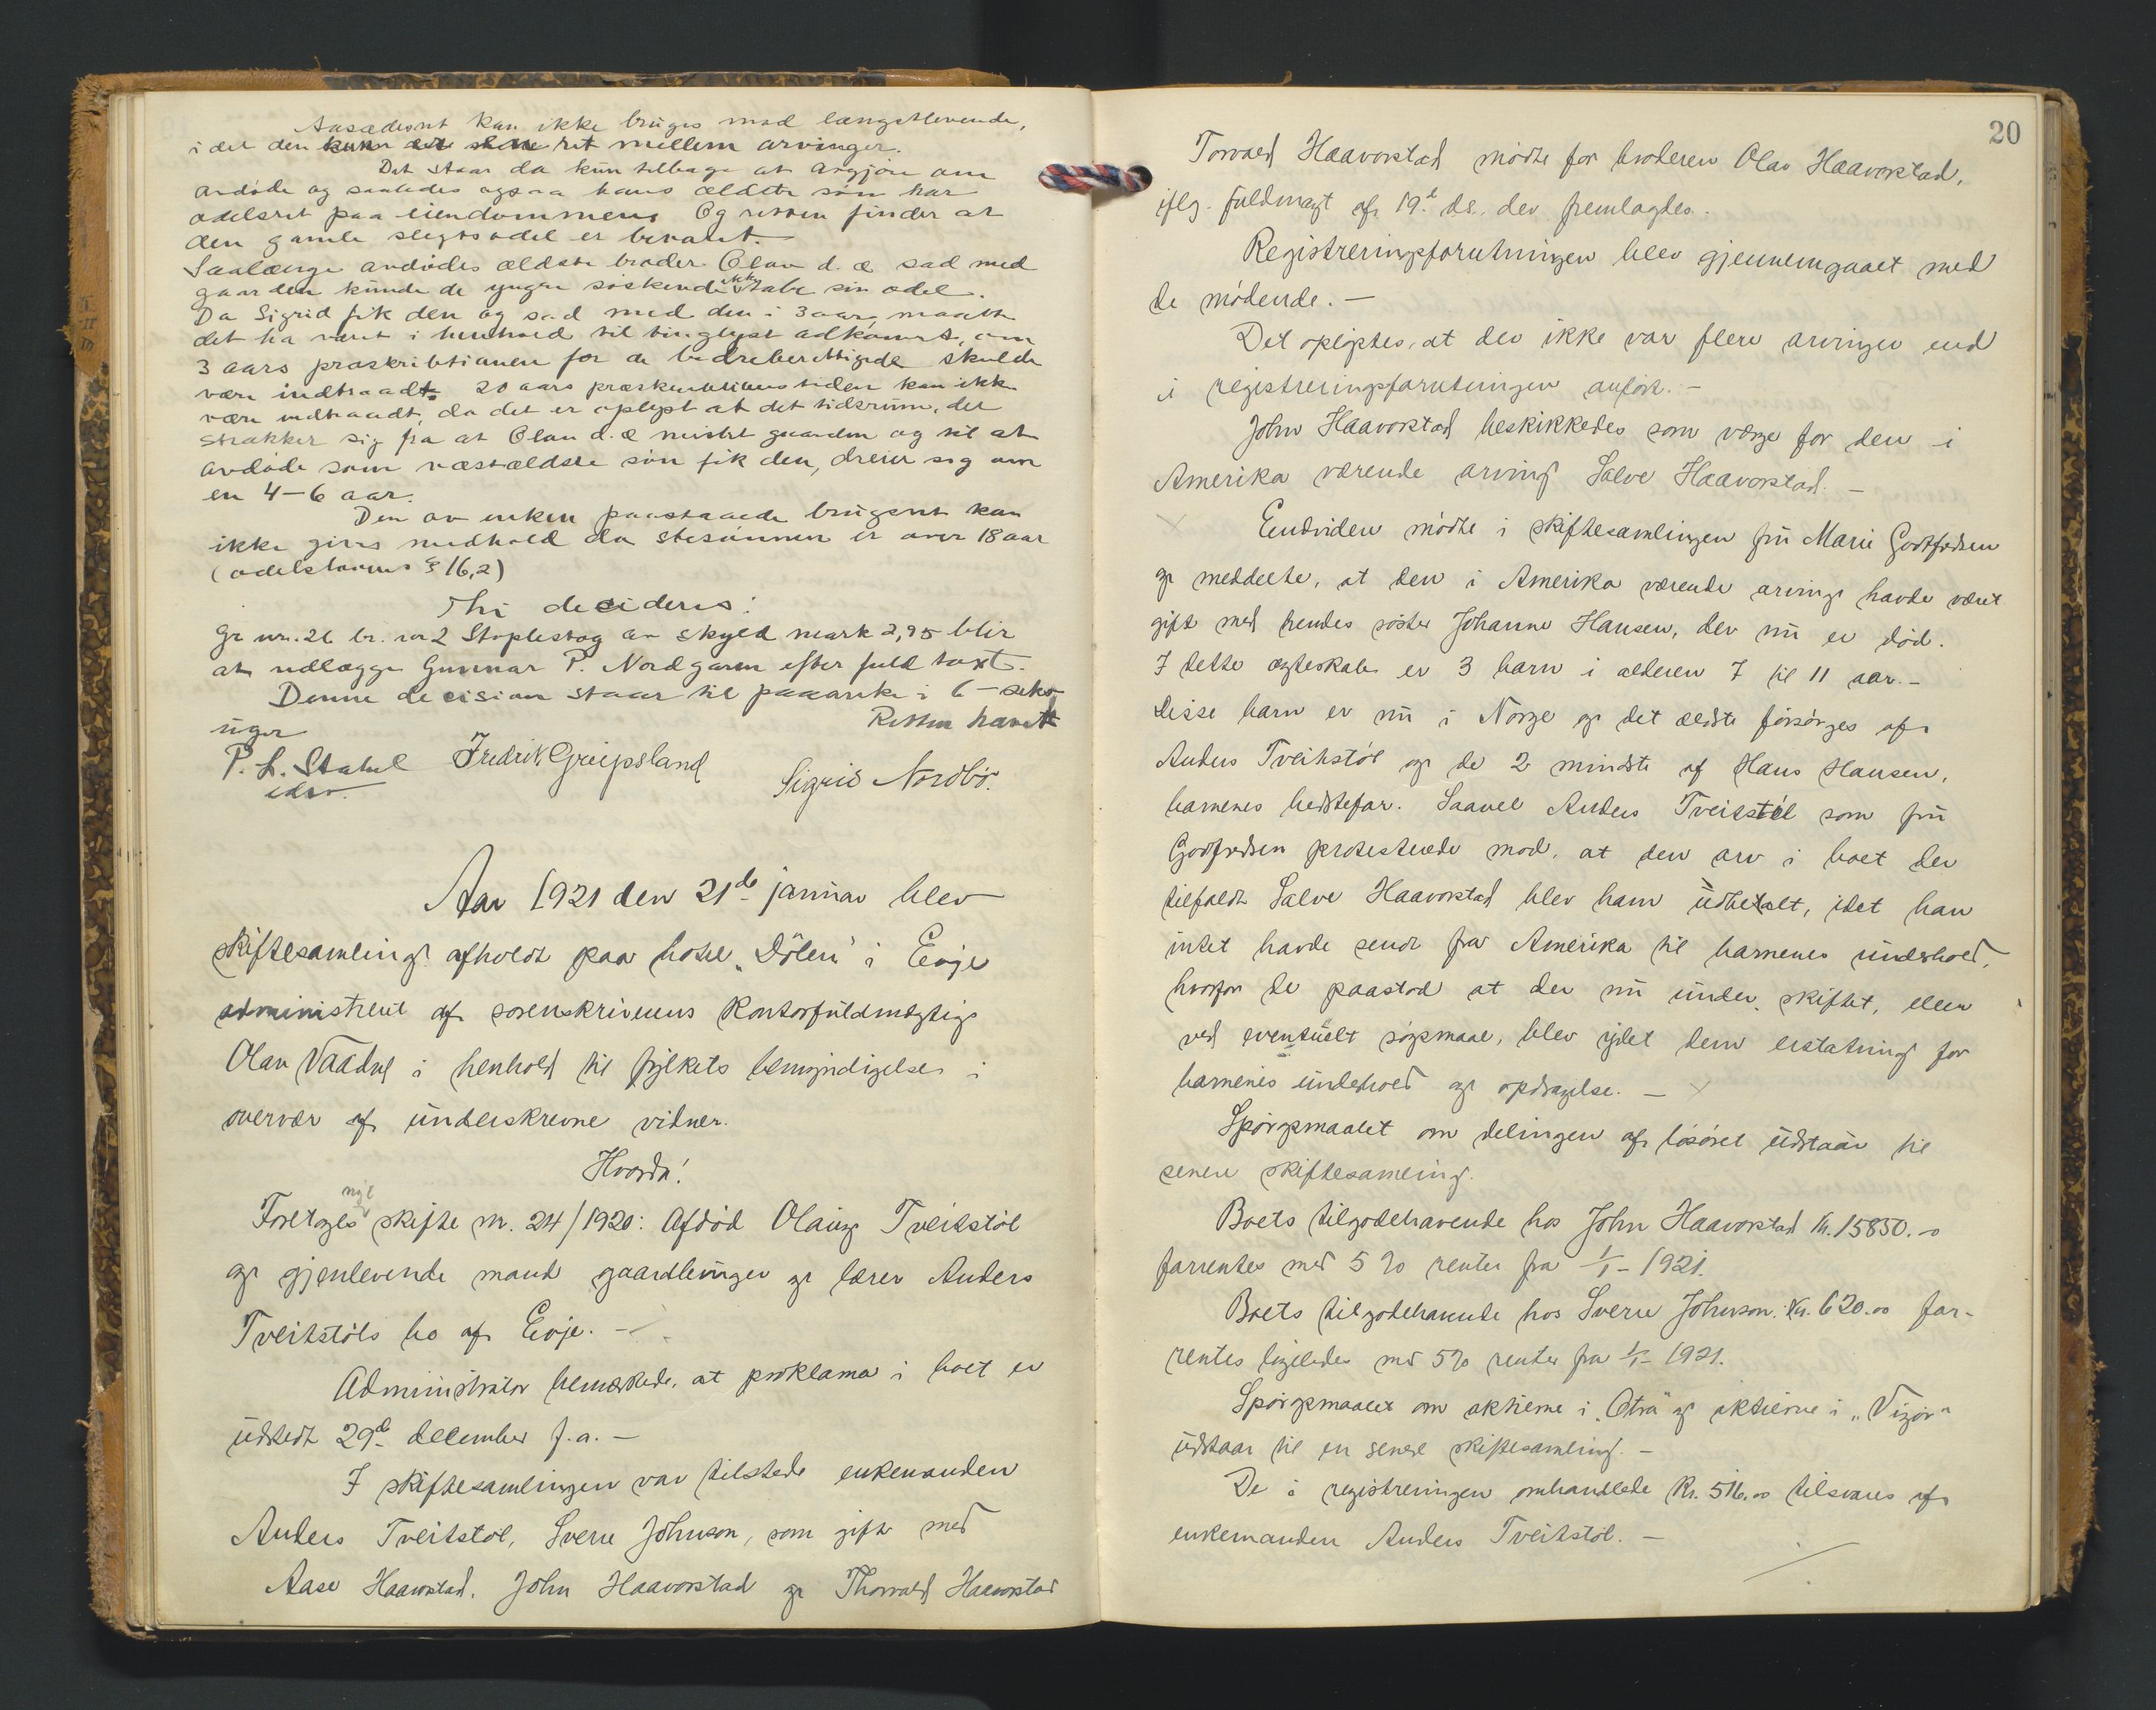 Aasædesret kan ikke bruges mod længstlevende,
i det den kun er en ret mellem arvinger.
Det staar da kun tilbage at avgjøre om
avdøde og saaledes ogsaa hans ældste søn har
odelsret paa eiendommen. Og retten finder at
den gamle slegtsodel er bevaret.
Saalænge avdødes ældste broder Olav d. æ sad med
gaarden kunde de yngre søskende ikke tabe sin odel.
Da Sigrid fik den og sad med den i 3 aar, maatte
det ha været i henhold til tinglyst adkomst, om
3 aars præskribtionen for de bedreberettigede skulde
være indtraadt. 20 aars præskribtionstiden kan ikke
være indtraadt, da det er oplyst at det tidsrum, det
strækker sig fra at Olav d. æ mistet gaarden og til at
avdøde som næstældste søn fik den, dreier sig om
en 4-6 aar.
Den av enken paastaaede brugsret kan
ikke gives medhold da stesønnen er over 18 aar
(odelslovens § 16,2)
Thi decideres:
Gr nr. 26 br. nr 2 Stoplestog av skyld mark 2,95 blir
at utlægge Gunnar P. Nordgaren efter fuld taxt.
Denne decision staar til paaanke i 6 - seks
uger
Retten hævet
P. L. Stahel Fredrik Greipsland
edsv. Sigrid Nordbö.
Aar 1921 den 21de januar blev
skiftesamling afholdt paa hotel "Dölen" i Evje
administreret af sorenskriverens kontorfuldmægtig
Olav Vaadal i henhold til fylkets bemyndigelse i
overvær af underskrevne vidner.
Hvorda!
Foretoges nyt skifte nr. 24/1920: Afdöd Olaug Tveitstöl
og gjenlevende mand gaardbruger og lærer Anders
Tveitstöls bo af Evje. -
Administrator bemærkede, at proklama i boet er
udstedt 29de december f.a. -
I skiftesamlingen var tilstede enkemanden
Anders Tveitstöl, Sverre Johnson, som gift med
Aase Haavorstad, John Haavorstad og Thorvald Haavorstad
20
Torvald Haavorstad mödte for broderen Olav Haavorstad,
iflg. fuldmagt af 19.d ds., der fremlagdes.
Registreringsforretningen blev gjennemgaaet med
de mödende. -
Det oplystes, at der ikke var flere arvinger end
i registreringsforretningen anfört. -
John Haavorstad beskikkedes som værge for den i
Amerika værende arving Salve Haavorstad. -
Endvidere mödte i skiftesamlingen fru Marie Godtfredsen
og meddelte, at den i Amerika værende arving havde været
gift med hendes söster Johanne Hansen, der nu er död.
I dette ægteskab er 3 barn i alderen 7 til 11 aar. -
Disse barn er nu i Norge og det ældste forsörges af
Anders Tveitstöl og de 2 mindste af Hans Hansen,
barnenes bedstefar. Saavel Anders Tveitstöl som fru
Godfredsen protesterede mod, at den arv i boet der
tilfaldt Salve Haavorstad blev ham udbetalt, idet han
intet havde sendt fra Amerika til barnenes underhold,
hvorfor de paastod at der nu under skiftet, eller
ved eventuelt sögsmaal, blev ydet dem erstatning for
barnenes underhold og opdragelse. -
Spörgsmaalet om delingen af lösöret udstaar til
senere skiftesamling.
Boets tilgodehavende hos John Haavorstad kr. 15850.-
forrentes med 5 % renter fra 1/1- 1921.
Boets tilgodehavende hos Sverre Johnson: Kr. 620.00 for-
rentes ligeledes med 5 % renter fra 1/1- 1921.
Spörgsmaalet om aktierne i "Otra" og aktierne i "Vigör"
udstaar til en senere skiftesamling. -
De i registreringen omhandlede kr. 516.00 tilsvares af
enkemanden Anders Tveitstöl. -